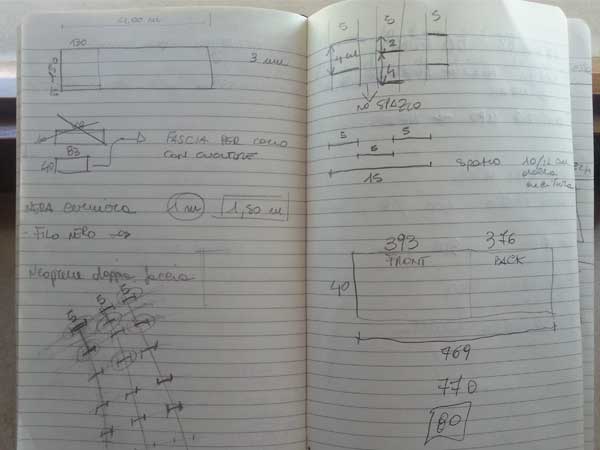 4,00 m
130
3 mm
83
40
FASCIA PER COLLO
CON CUCITURE
1 m
1,50 m
- FILO NERO
Neoprene doppia faccia
5
5
5
5
5
5
4 cm
2
4
NO SPAZIO
5
5
5
15
SPAZIO
10/12 cm
DALLA
CUCITURA
393
376
FRONT
BACK
40
769
770
80